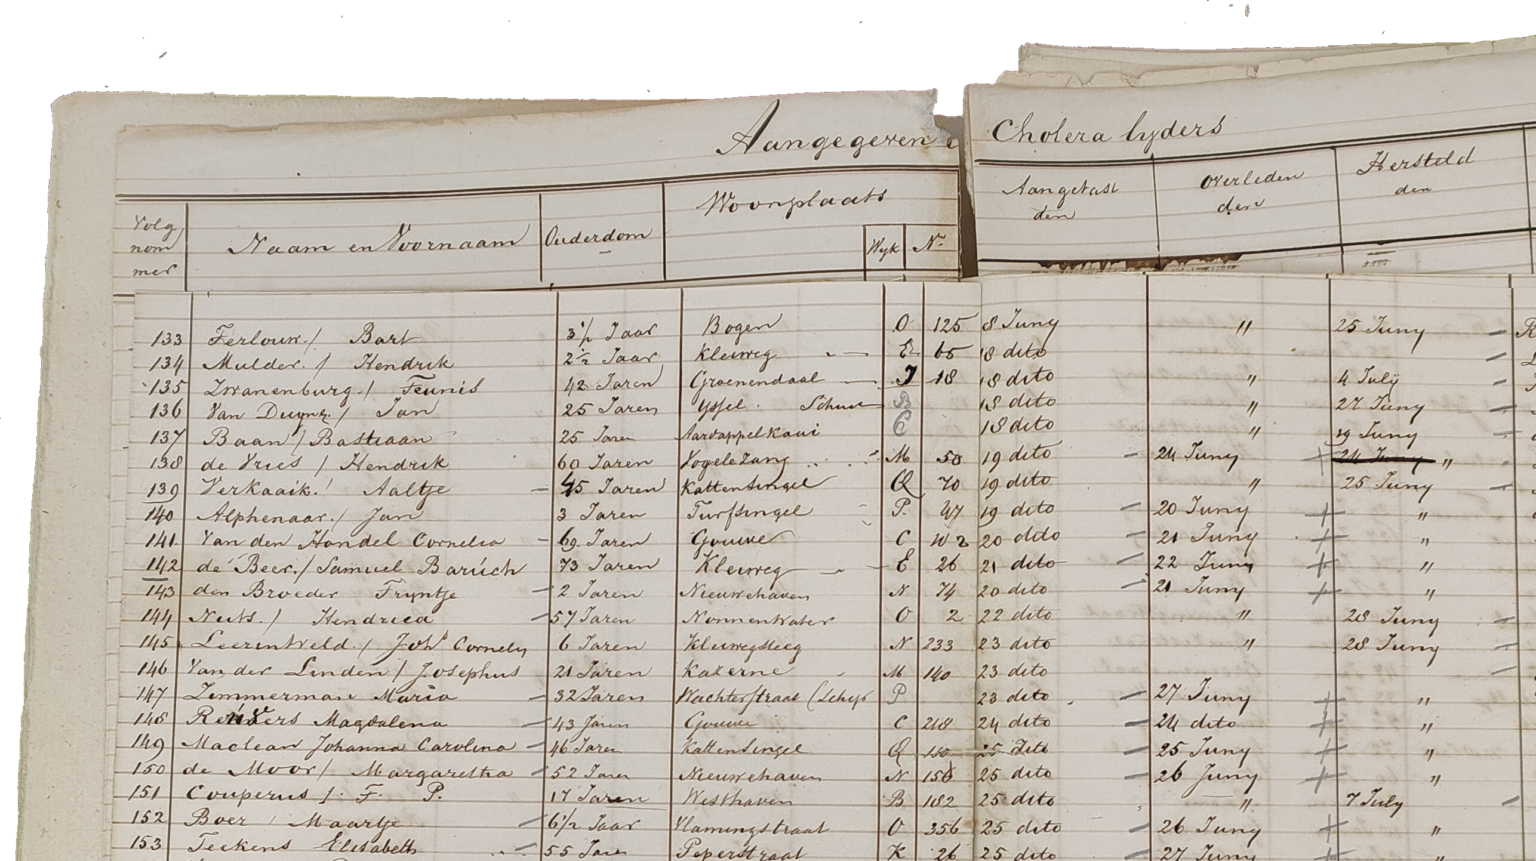 Aangegeven Cholera lyders
Volg nom mer Naam en Voornaam Ouderdom Woonplaats Wyk No Aangetast den Overleden den Hersteld den
133 Ferlouw / Bart 3 1/2 Jaar Bogen O 125 18 Juny " 25 Juny
134 Mulder / Hendrik 2 1/2 Jaar Kleiweg E 65 18 dito
135 Zwanenburg / Teunis 42 Jaren Groenendaal I 18 18 dito " 4 July
136 Van Duyn / Jan 25 Jaren Yssel Schuit B 18 dito " 27 Juny
137 Baan / Bastiaan 25 Jaren Aardappel Kaai C 18 dito " 19 Juny
138 de Vries / Hendrik 60 Jaren Vogelezang M 50 19 dito 24 Juny 24 Juny "
139 Verkaaik / Aaltje 45 Jaren Kattensingel Q 70 19 dito " 25 Juny
140 Alphenaar / Jan 3 Jaren Turfsingel P 47 19 dito 20 Juny "
141 Van den Hondel Cornelia 69 Jaren Gouwe C 102 20 dito 21 Juny "
142 de Beer / Samuel Baruch 73 Jaren Kleiweg E 26 21 dito 22 Juny "
143 den Broeder Fryntje 2 Jaren Nieuwehaven N 74 20 dito 21 Juny "
144 Nuts / Hendrica 57 Jaren Nonnenwater O 2 22 dito " 28 Juny
145 Leerintveld / Joh Cornelis 6 Jaren Kleiwegsteeg N 233 23 dito " 28 Juny
146 Van der Linden / Josephus 21 Jaren Kazerne M 140 23 dito
147 Zimmerman Maria 32 Jaren Wachterstraat P 23 dito 27 Juny "
148 Magdalena 43 Jaren Gouwe C 218 24 dito 24 dito "
149 Maclean Johanna Carolina 46 Jaren Kattensingel Q 110 25 dito 25 Juny "
150 de Moor / Margaretha 52 Jaren Nieuwehaven N 156 25 dito 26 Juny "
151 Couperus / F. P. 17 Jaren Westhaven B 182 25 dito " 7 July
152 Boer Maartje 6 1/2 Jaar Vlamingstraat O 356 25 dito 26 Juny "
153 Teekens Elisabeth 55 Jaren Peperstraat K 26 25 dito 27 Juny "